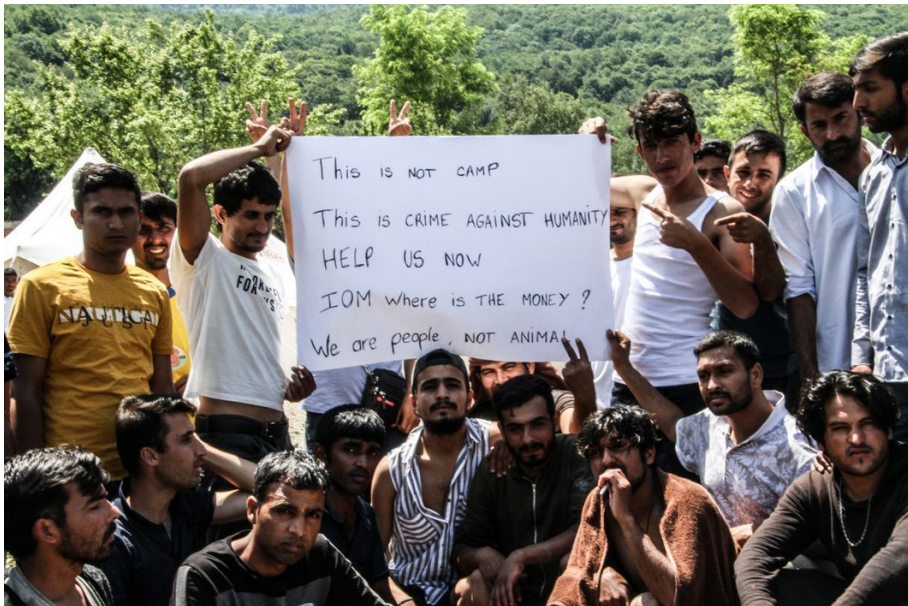 This is NOT CAMP
This is CRIME AGAINST HUMANITY
HELP US NOW
IOM Where is THE MONEY ?
We are people, NOT ANIMAL
NAUTICAL
FOR